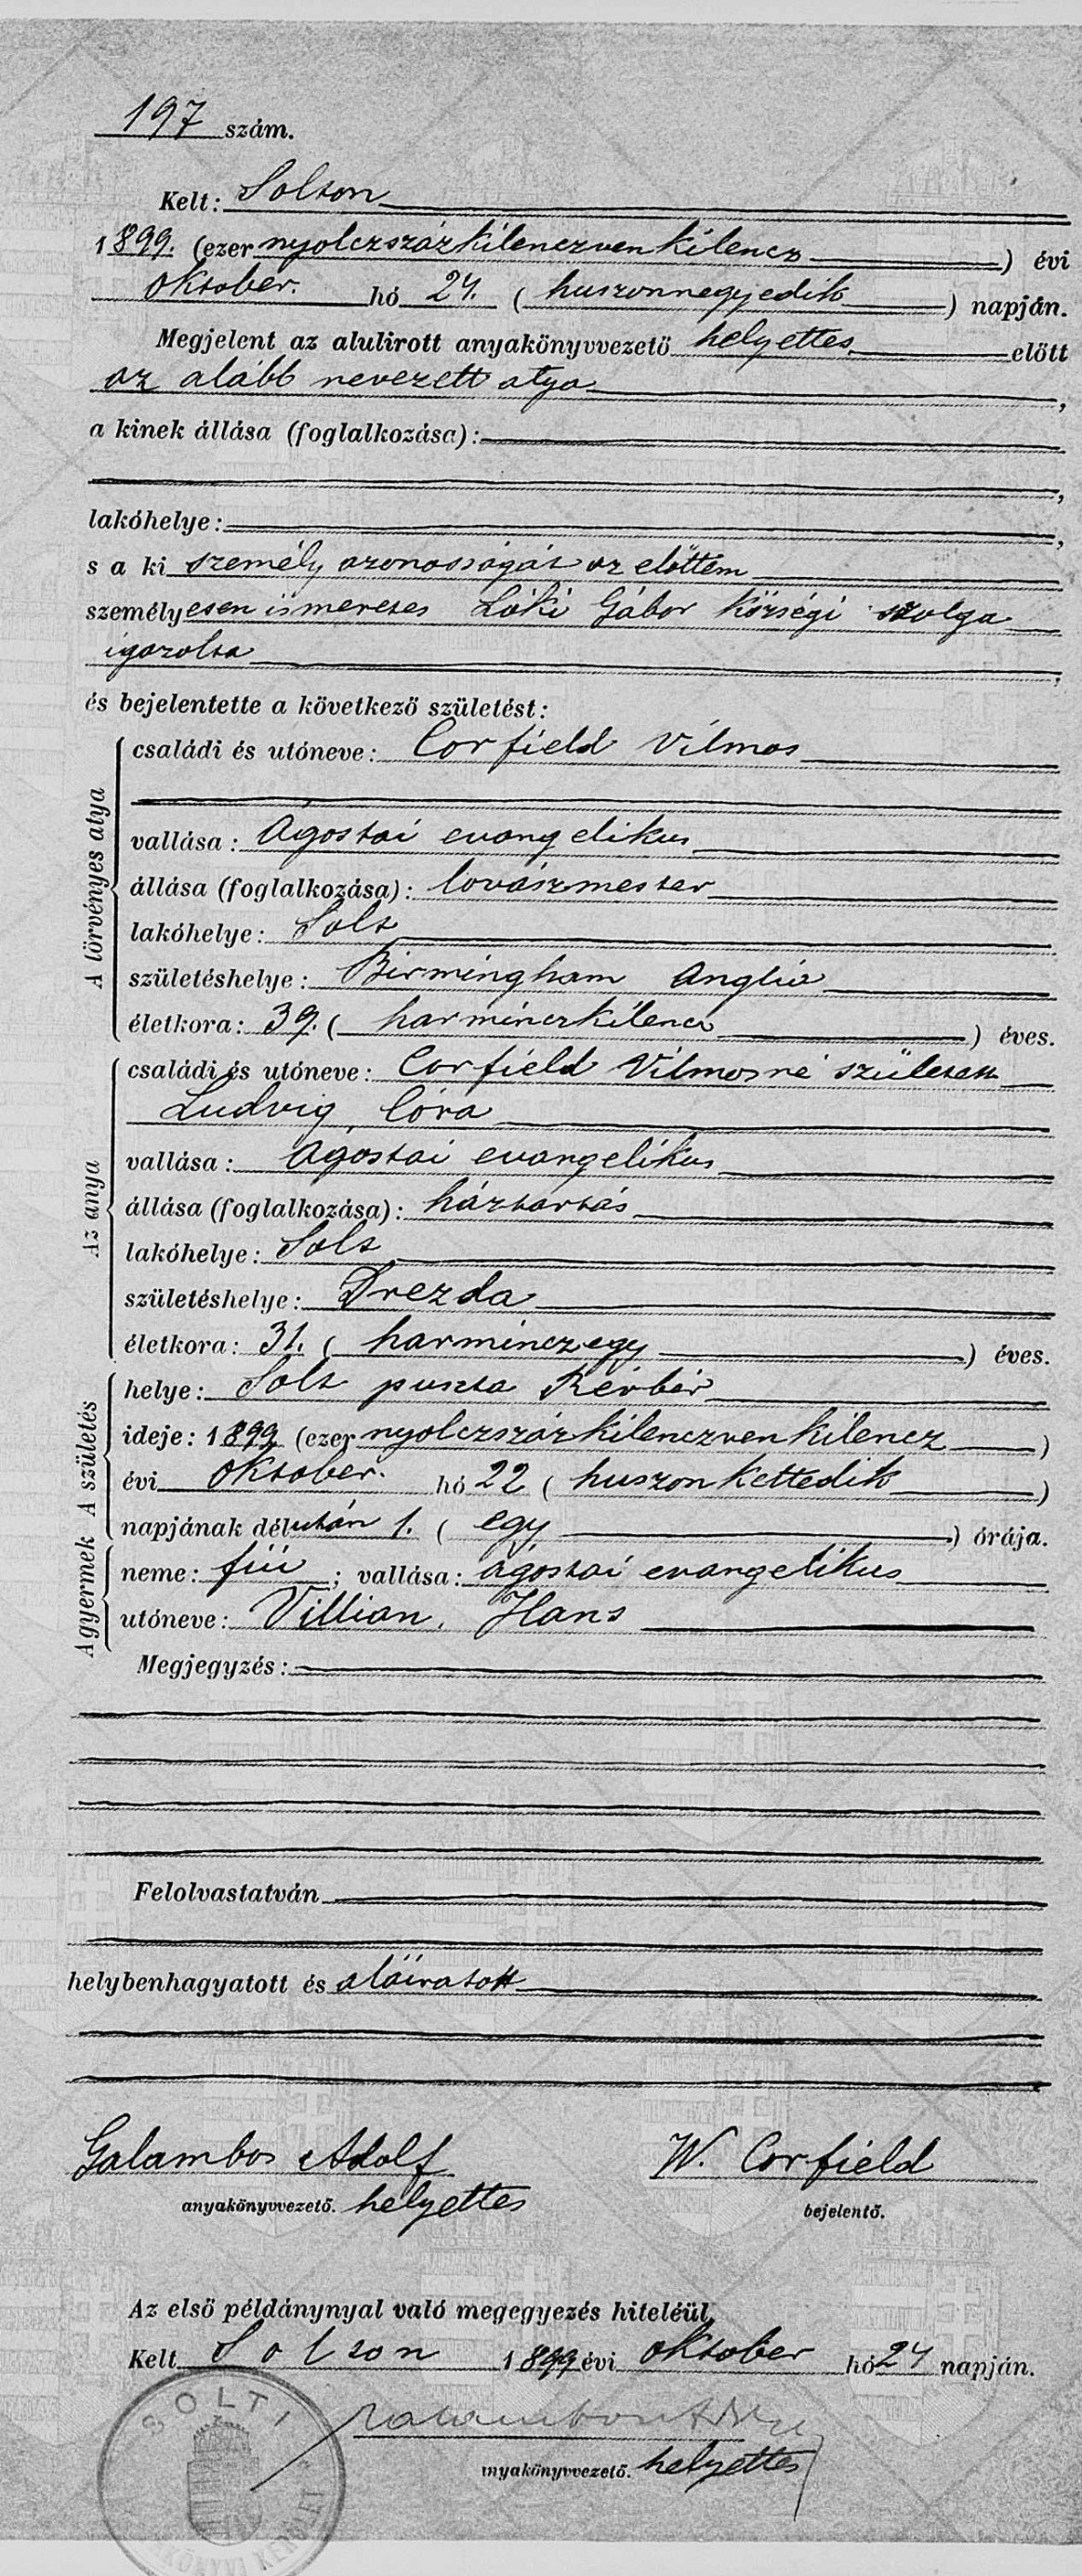 197 szám.
Kelt: Solton
1899. (ezer nyolczszázkilenczvenkilencz) évi
oktober. hó 24. (huszonnegyedik) napján.
Megjelent az alulirott anyakönyvvezető helyettes előtt
az alább nevezett atya,
a kinek állása (foglalkozása):
,
lakóhelye: ,
s a ki személy azonosságát az előttem
személyesen ismeretes Lóki Gábor községi szolga
igazolta,
és bejelentette a következő születést:
A törvényes atya
családi és utóneve: Corfield Vilmos
vallása: Ágostai evangelikus
állása (foglalkozása): lovászmester
lakóhelye: Solt
születéshelye: Birmingham Anglia
életkora: 39. (harminczkilencz) éves.
Az anya
családi és utóneve: Corfield Vilmosné született
Ludvig, Córa
vallása: Ágostai evangelikus
állása (foglalkozása): háztartás
lakóhelye: Solt
születéshelye: Drezda
életkora: 31. (harminczegy) éves.
A születés
helye: Solt puszta Révbér
ideje: 1899 (ezer nyolczszázkilenczvenkilencz)
évi oktober. hó 22 (huszonkettedik)
napjának délután 1. (egy) órája.
A gyermek
neme: fiú; vallása: ágostai evangelikus
utóneve: Villian, Hans
Megjegyzés:
Felolvastatván
helybenhagyatott és aláiratott
Galambos Adolf W. Corfield
anyakönyvvezető. helyettes bejelentő.
Az első példánynyal való megegyezés hiteléül,
Kelt Solton 1899 évi oktober hó 24 napján.
anyakönyvvezető. helyettes
SOLTI